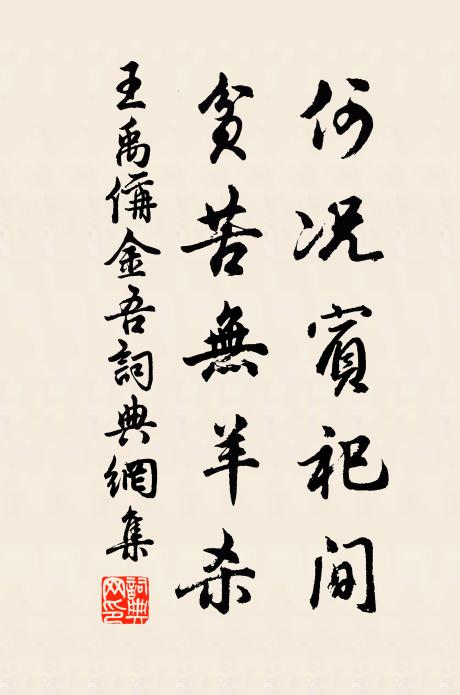 何况賓祀間
貧苦無羊杀
王禹偁金吾詞典網集
詞典网印